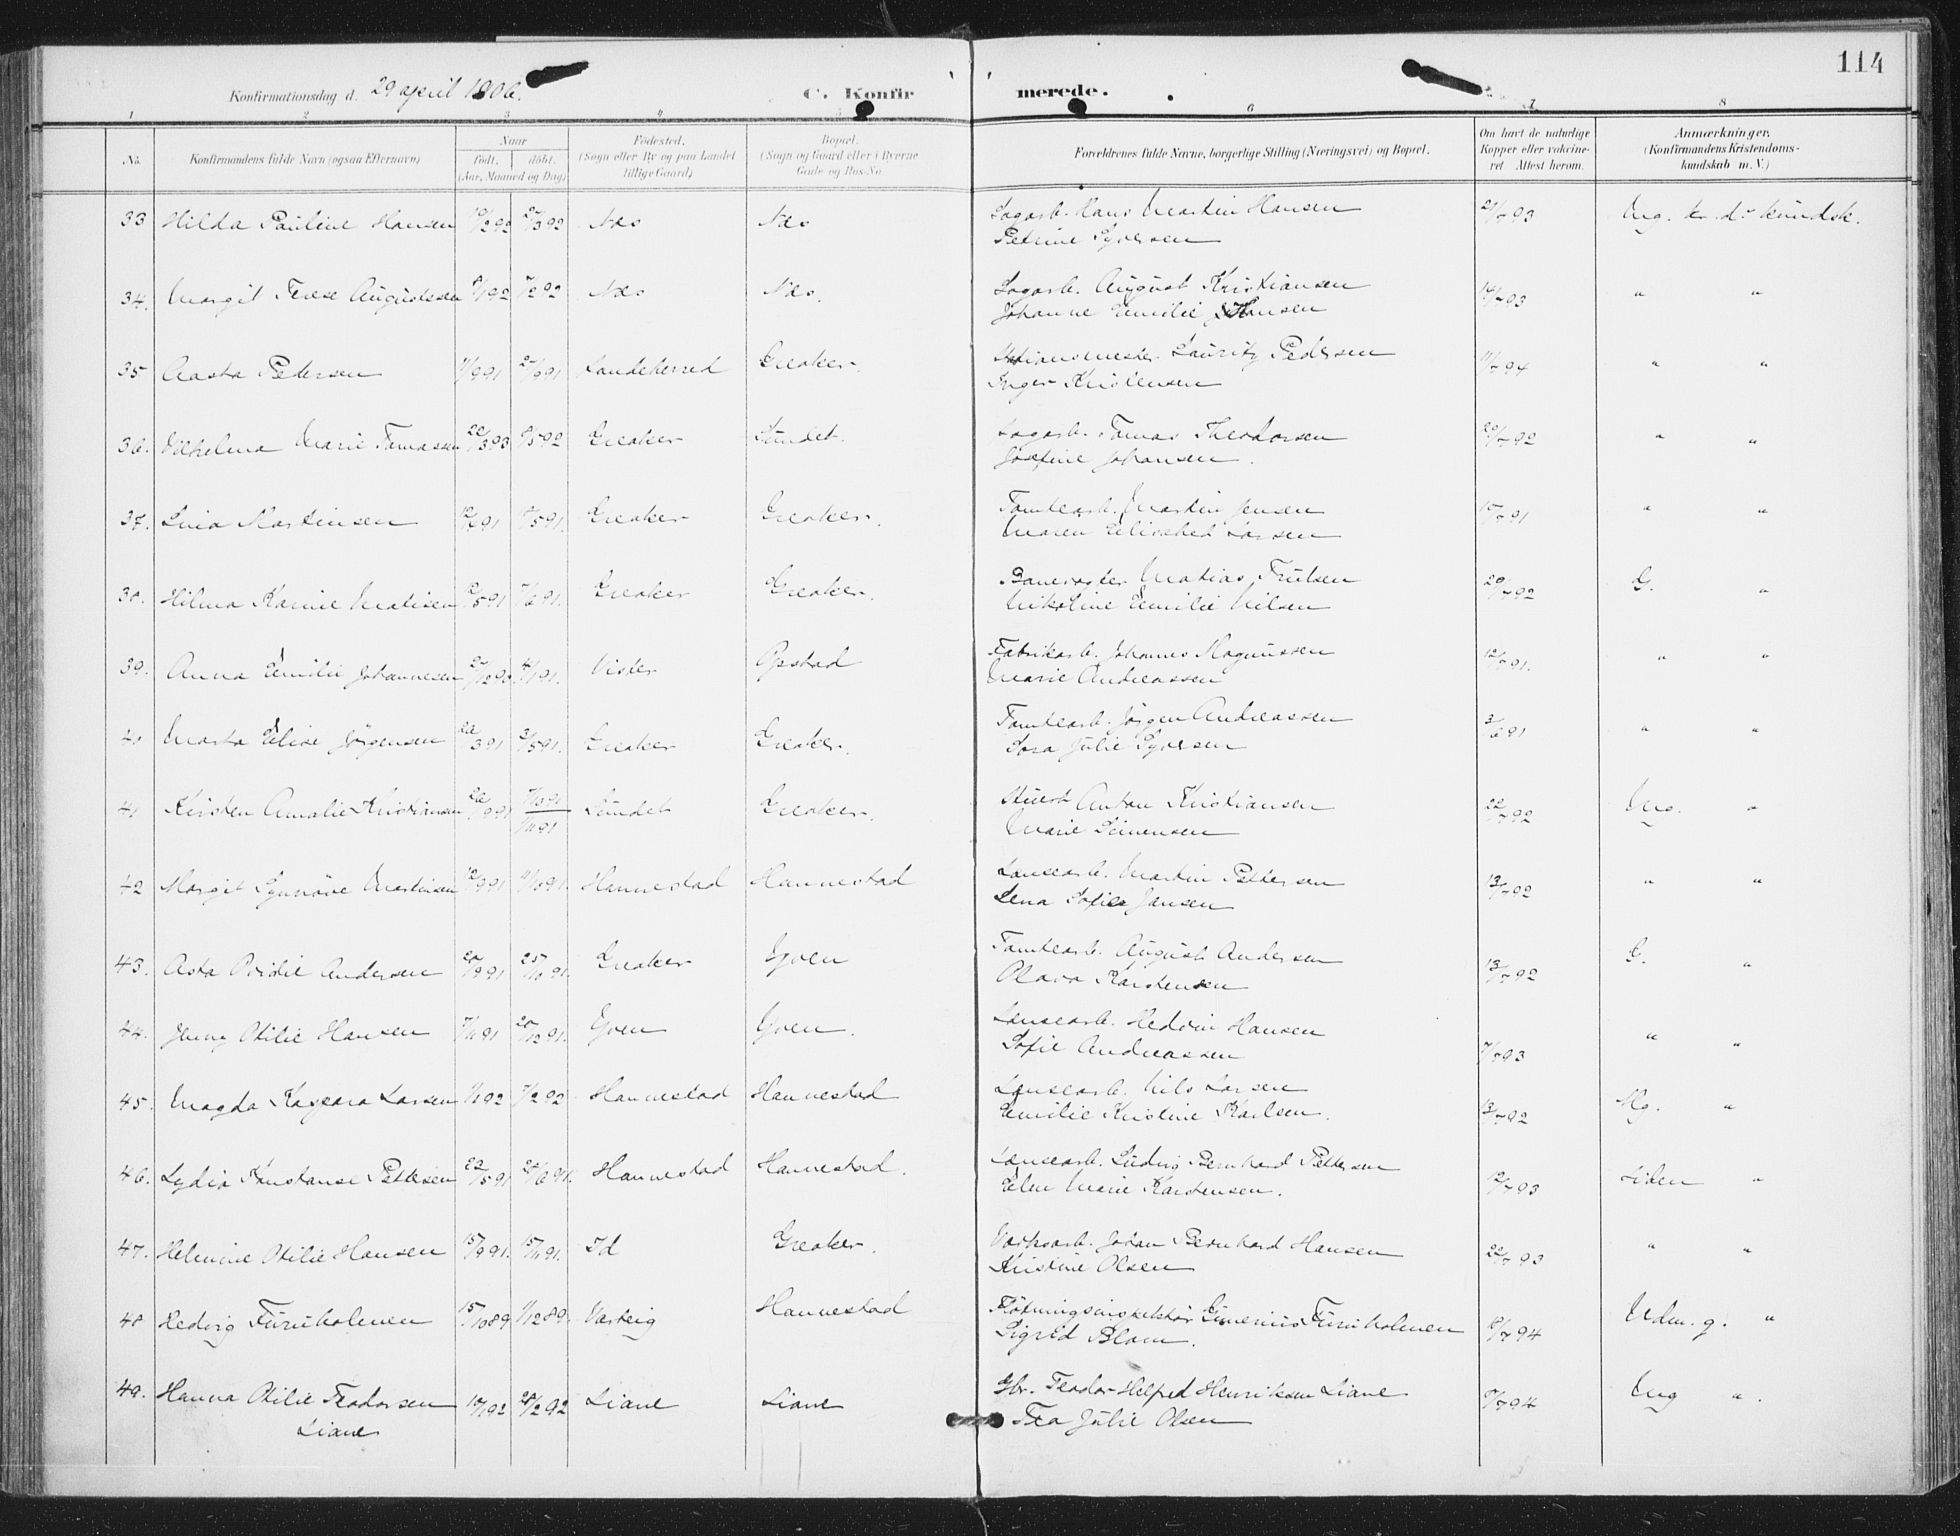 114
Konfirmationsdag d. 29 april 1906.
C. Konfirmerede.
1 2 3 4 5 6 7 8
No. Konfirmandens fulde Navn (ogsaa Efternavn) Naar födt. döbt. (Aar, Maaned og Dag) Födested. (Sogn eller By og paa Landet tillige Gaard) Bopæl. (Sogn og Gaard eller i Byerne Gade og Hus-No. Forældrenes fulde Navne, borgerlige Stilling (Næringsvei) og Bopæl. Om havt de naturlige Kopper eller vakcineret Attest herom. Anmærkninger. (Konfirmandens Kristendomskundskab m. V.)
33 Hilda Pauline Hansen Næs Næs Sagarb. Hans Martin Hansen 21/7 93 Mg. kr. d. kundsk.
Petrine Syversen
34. Margit Terese Augustesen 7/2 92 Næs Næs. Sagarb. August Kristiansen 14/7 93 " "
Johanne Emilie Hansen
35 Aasta Pedersen 27/9 91 Sandeherred Greaker. Lauritz Pedersen 11/7 94 " "
Inger Kristensen
36. Vilhelma Marie Tomassen 8/5 92 Greaker Sundet. Sagarb. Tomas Theodorsen 20/7 92 " "
Josefine Johansen.
37. Lina Martinsen Greaker Greaker. Tomtearb. Martin Jensen 15/7 91 " "
Maren Elisabed Larsen
38. Hilma Karine Matisen 7/6 91. Greaker Greaker. Banevogter Matias Trulsen 20/7 92 G. "
Nikoline Emilie Nilsen
39. Anna Emilie Johannesen 27/12 90. 4/1 91. Vister Opstad Fabrikarb. Johannes Magnussen 12/7 91. " "
Marie Andreassen
40 Marta Elise Jörgensen 22/3 91 3/5 91. Greaker Greaker. Tomtearb. Jörgen Andreassen 3/6 91 " "
Lora Julie Syversen
41 Kirsten Amalie Kristiansen 26/9 91 Sundet Greaker. Stuert Anton Kristiansen 22/7 92 Mg. "
Marie Simensen
42 Margit Synnöve Martinsen 12/9 91 11/10 91. Hannestad Hannestad Lensearb. Martin Pettersen 13/7 92 " "
Lena Sofie Jansen
43. Asta Ovidie Andersen 20/9 91 25/10 91. Greaker Yven Tomtearb. August Andersen 13/7 92 G. "
Olava Karstensen
44. Jenny Otilie Hansen 7/11 91 20/12 91. Yven Yven. Lensearb. Hedvin Hansen 7/7 93 " "
Sofie Andreassen
45. Magda Kaspara Larsen 1/1 92 7/2 92 Hannestad Hannestad Lensearb. Nils Larsen 13/7 92 Mg. "
Emilie Kristine Karlsen.
46. Lydia Konstanse Pettersen 22/5 91 28/6 91. Hannestad Hannestad. Lensearb. Ludvig Bernhard Pettersen 12/7 93 Liden "
Elen Marie Karstensen.
47. Helmine Otilie Hansen 15/9 91. 15/11 91. Id Greaker. Verksarb. Johan Bernhard Hansen 22/7 93 " "
Kristine Olsen
48 Hedvig Furuholmen 15/10 89 1/12 89. Varteig Hannestad Flötningsinspektör Gunerius Furuholmen 18/7 94 Udm. g. "
Sigrid Blom.
49. Hanna Otilie Teodorsen 28/2 92 Liane Liane Gbr. Teodor Helfred Henriksen Liane 7/7 94 Mg "
Liane Tea Julie Olsen